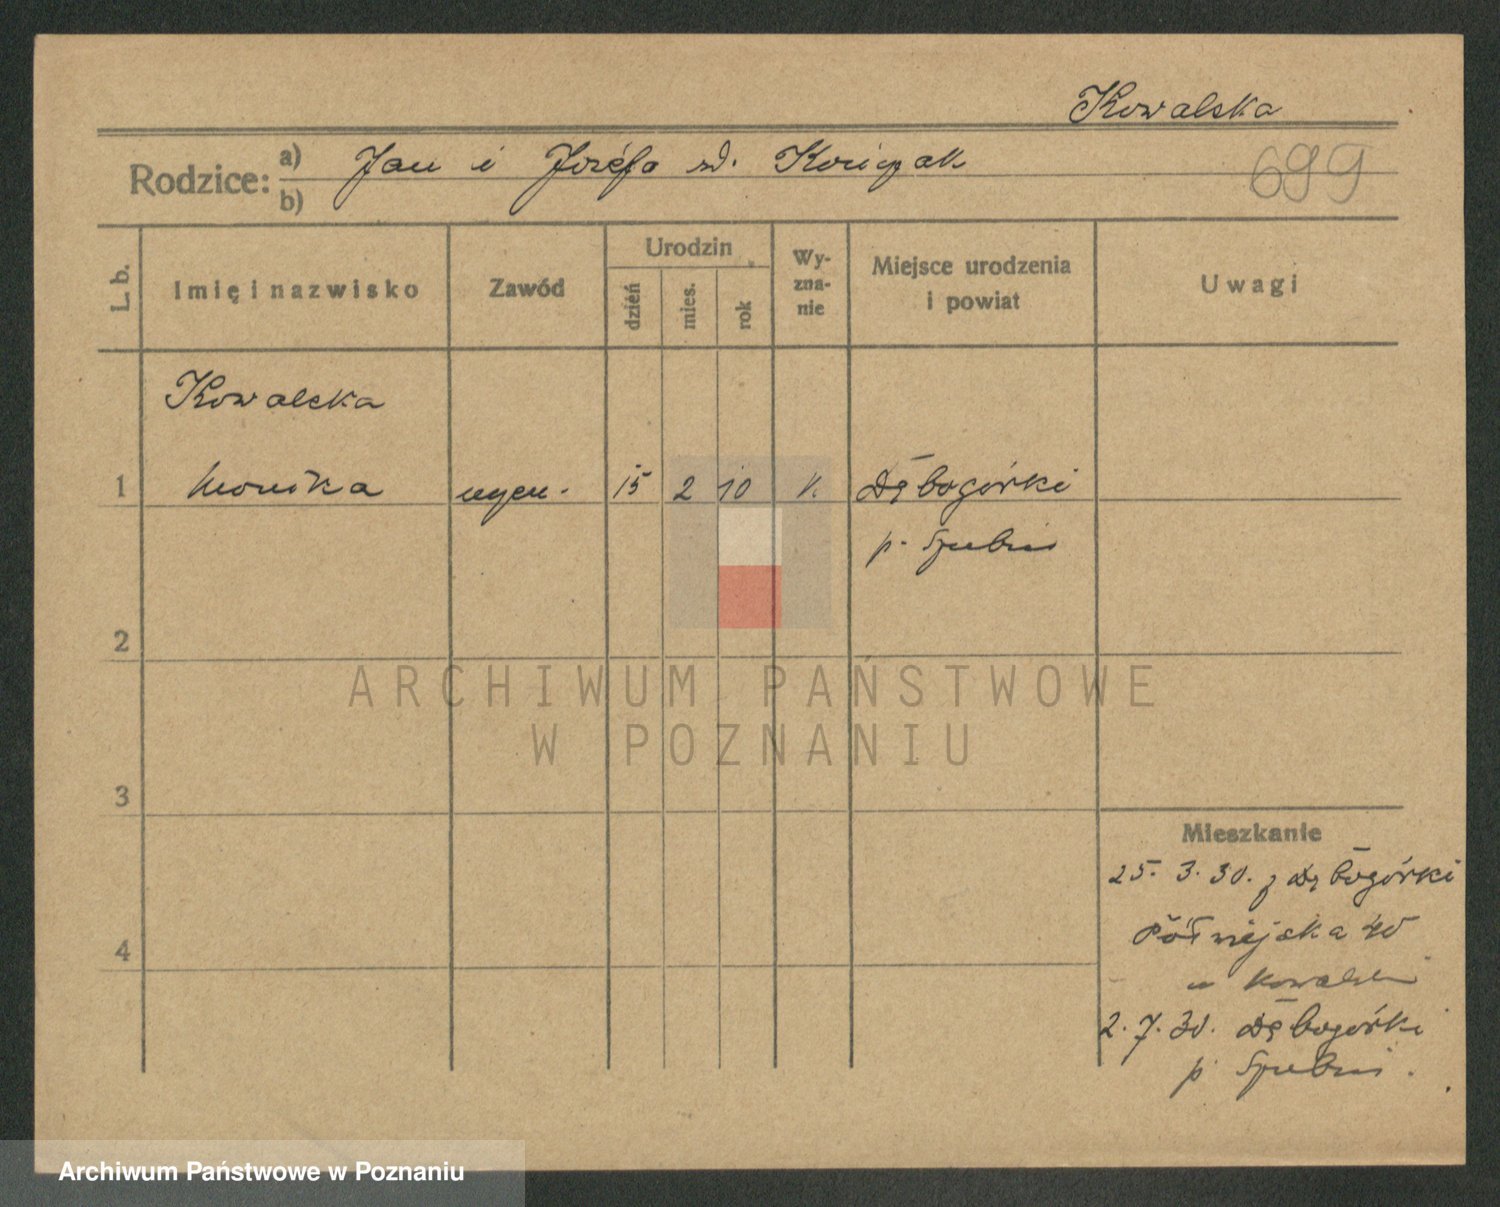 Kowalska
Rodzice: a) Jan i Józefa zd.
b)
699
L. b.
Imię i nazwisko
Zawód
Urodzin
dzień
mies.
rok
Wy-
zna-
nie
Miejsce urodzenia
i powiat
Uwagi
Kowalska
1 Monika uczen. 15 2 10 k. Dębogórki
p. Szubin
2
3
4
Mieszkanie
25. 3. 30. z Dębogórki
Półwiejska 40
u Kowalski
2. 7. 30. Dębogórki
p. Szubin.
ARCHIWUM PAŃSTWOWE
W POZNANIU
Archiwum Państwowe w Poznaniu